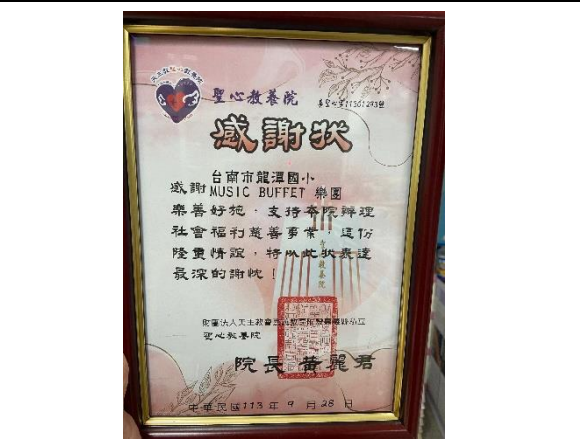 聖心教養院
感謝狀
台南市龍潭國小
感謝 MUSIC BUFFET 樂團
樂善好施，支持本院辦理
社會福利慈善事業，這份
隆重情誼，特以此狀表達
最深的謝忱！
聖心教養院
院長 黃麗君
中華民國113年9月28日